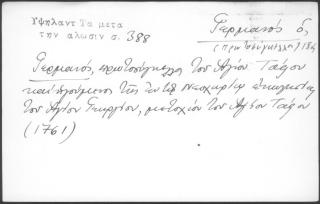 Υψηλαντ Τα μετα
την αλωσιν σ. 388
Γερμανός ὁ
(πρωτοσύγκελλος) 
Γερμανός, πρωτοσύγκελλος τοῦ Ἁγίου Τάφου
καὶ ἡγούμενος τῆς ἐν τῷ Νεοχωρίῳ ἐκκλησίας
τοῦ Ἁγίου Γεωργίου, μετοχίου τοῦ Ἁγίου Τάφου
(1761)